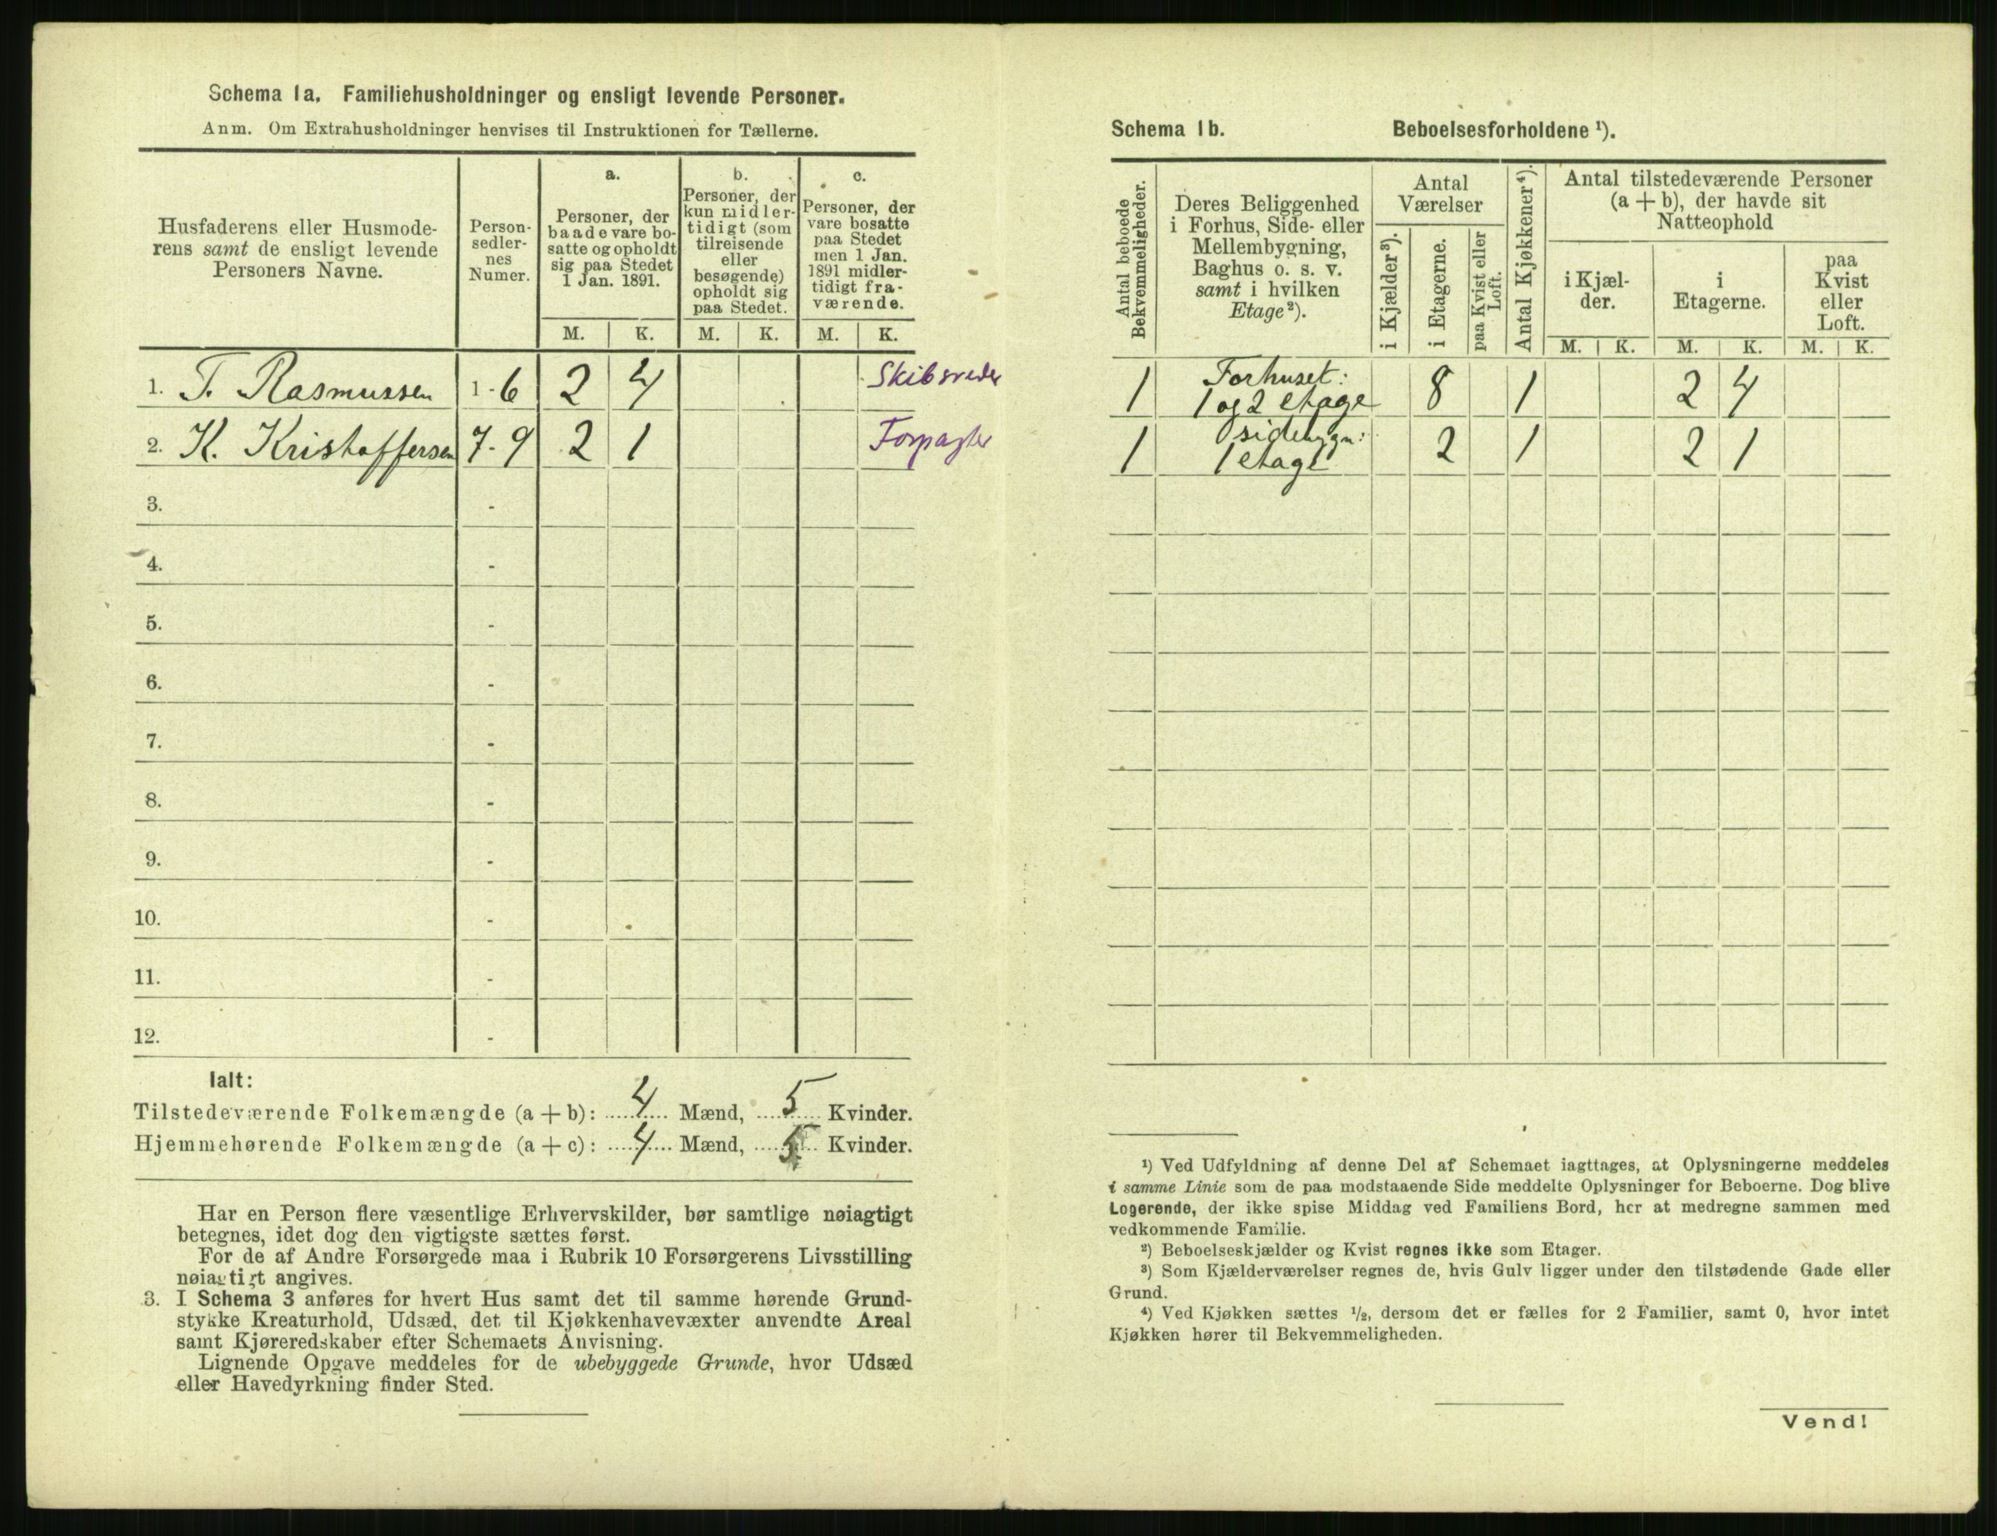 Schema 1a. Familiehusholdninger og ensligt levende Personer.
Anm. Om Extrahusholdninger henvises til Instruktionen for Tællerne.
Husfaderens eller Husmode-
rens samt de ensligt levende
Personers Navne.
Person-
sedler-
nes
Numer.
a.
Personer, der
baade vare bo-
satte og opholdt
sig paa Stedet
1 Jan. 1891.
b.
Personer, der
kun midler-
tidigt (som
tilreisende
eller
besøgende)
opholdt sig
paa Stedet.
c.
Personer, der
vare bosatte
paa Stedet
men 1 Jan.
1891 midler-
tidigt fra-
værende.
M. K. M. K. M. K.
1. T. Rasmussen 1 - 6 2 4 Skibsreder
2. K. Kristoffersen 7 - 9 2 1 Forpagter
3. -
4. -
5. -
6. -
7. -
8. -
9. -
10. -
11. -
12. -
Ialt:
Tilstedeværende Folkemængde (a + b): 4 Mænd, 5 Kvinder.
Hjemmehørende Folkemængde (a + c): 4 Mænd, 5 Kvinder.
Har en Person flere væsentlige Erhvervskilder, bør samtlige nøiagtigt
betegnes, idet dog den vigtigste sættes først.
For de af Andre Forsørgede maa i Rubrik 10 Forsørgerens Livsstilling
nøiagtigt angives.
3. I Schema 3 anføres for hvert Hus samt det til samme hørende Grund-
stykke Kreaturhold, Udsæd, det til Kjøkkenhavevæxter anvendte Areal
samt Kjøreredskaber efter Schemaets Anvisning.
Lignende Opgave meddeles for de ubebyggede Grunde, hvor Udsæd
eller Havedyrkning finder Sted.
Schema 1b. Beboelsesforholdene ¹).
Antal beboede
Bekvemmeligheder.
Deres Beliggenhed
i Forhus, Side- eller
Mellembygning,
Baghus o. s. v.
samt i hvilken
Etage ²).
Antal
Værelser
i Kjælder ³).
i Etagerne.
paa Kvist eller
Loft.
Antal Kjøkkener ⁴).
Antal tilstedeværende Personer
(a + b), der havde sit
Natteophold
i Kjæl-
der.
i
Etagerne.
paa
Kvist
eller
Loft.
M. K. M. K. M. K.
1 Forhuset: 8 1 2 4
1 og 2 etage
1 sidebygn: 2 1 2 1
1 etage
¹) Ved Udfyldning af denne Del af Schemaet iagttages, at Oplysningerne meddeles
i samme Linie som de paa modstaaende Side meddelte Oplysninger for Beboerne. Dog blive
Logerende, der ikke spise Middag ved Familiens Bord, her at medregne sammen med
vedkommende Familie.
²) Beboelseskjælder og Kvist regnes ikke som Etager.
³) Som Kjælderværelser regnes de, hvis Gulv ligger under den tilstødende Gade eller
Grund.
⁴) Ved Kjøkken sættes ½, dersom det er fælles for 2 Familier, samt 0, hvor intet
Kjøkken hører til Bekvemmeligheden.
Vend!